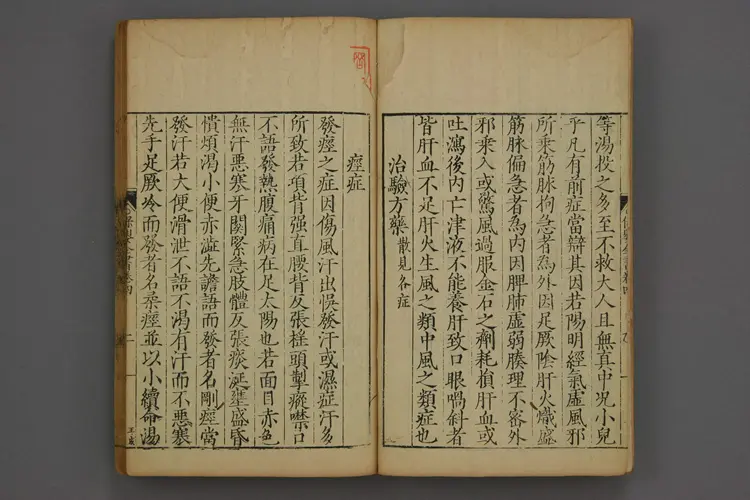 等湯投之多至不救大人且無真中况小兒
乎凡有前症當辯其因若陽明經氣虛風邪
所乘筋脉拘急者為外因足厥陰肝火熾盛
筋脉偏急者為内因脾肺虛弱腠理不密外
邪乘入或驚風過服金石之劑耗損肝血或
吐瀉後内亡津液不能養肝致口眼喎斜者
皆肝血不足肝火生風之類中風之類症也
治驗方藥散見各症
痙症
發痙之症因傷風汗出悞發汗或濕症汗多
所致若項背强直腰背反張揺頭掣瘲噤口
不語發熱腹痛病在足太陽也若面目赤色
無汗惡寒牙関緊急肢體反張痰涎壅盛昏
憒煩渴小便赤澁先譫語而發者名剛痙當
發汗若大便滑泄不語不渴有汗而不惡寒
先手足厥冷而發者名柔痙並以小續命湯
保嬰全書卷四
二